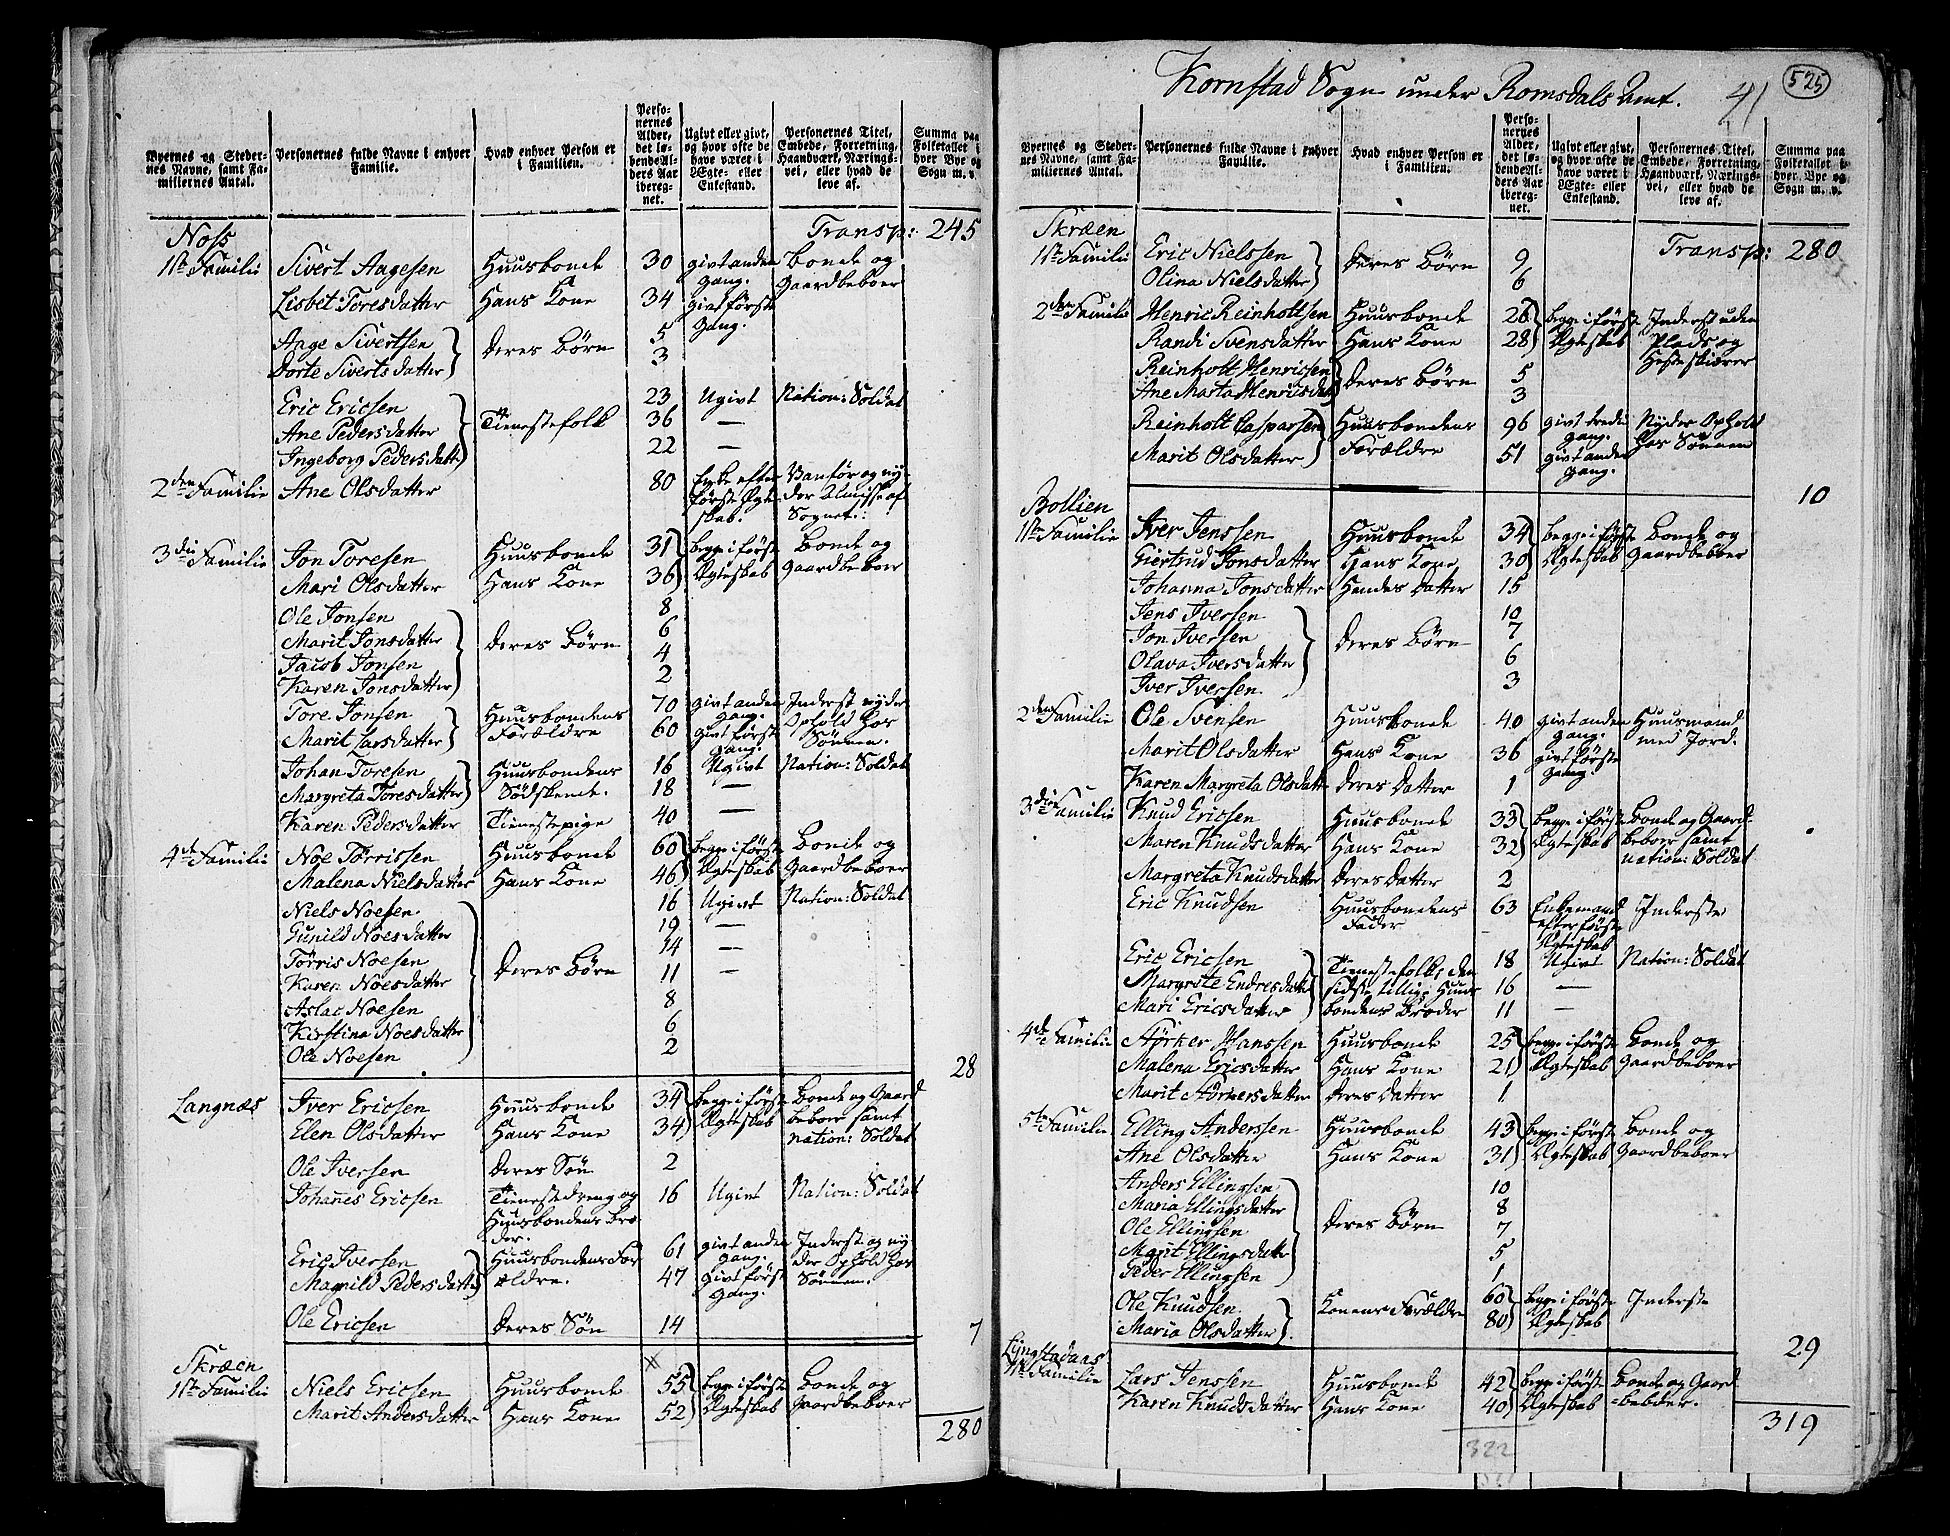 Byernes og Steder-
nes Navne, samt Fa-
miliernes Antal.
Personernes fulde Navne i enhver
Familie.
Hvad enhver Person er
i Familien.
Perso-
nernes
Alder,
det lø-
bende Al-
ders Aar
ibereg-
net.
Ugivt eller givt,
og hvor ofte de
have været i
Ægte- eller
Enkestand.
Personernes Titel,
Embede, Forretning,
Haandværk, Nærings-
vei, eller hvad de
leve af.
Summa paa
Folketallet i
hver Bye og
Sogn m. v.
Transp: 245
Noss
1ste Familie Sivert Aagesen Huusbonde 30 givt anden gang. Bonde og Gaardbeboer
Lisbet Toresdatter Hans Kone 34 givt første gang.
Aage Sivertsen } Deres Børn 5
Dorte Sivertsdatter 3
Eric Ericsen } Tienestefolk 23 Ugivt Nation: Soldat
Ane Pedersdatter 36 —
Ingeborg Pedersdatt 22 —
2den Familie Ane Olsdatter 80 Enke efter første Ægteskab. Vanför og nyder Almisse af Sognet.
3die Familie Jon Toresen Huusbonde 31 } begge i første Ægteskab Bonde og Gaardbeboer
Mari Olsdatter Hans Kone 36
Ole Jonsen } Deres Børn 8
Marit Jonsdatter 6
Jacob Jonsen 4
Karen Jonsdatter 2
Tore Jonsen } Huusbondens Forældre 70 givt anden gang. Inderst nyder Ophold hos Sønnen.
Marit Larsdatter 60 givt første gang.
Johan Toresen } Huusbondens Södskende. 16 Ugivt Nation: Soldat
Margreta Toresdatter 18 —
Karen Pedersdatter Tienestepige 40 —
4de Familie Noe Törrissen Huusbonde 60 } begge i første Ægteskab Bonde og Gaardbeboer
Malena Nielsdatter Hans Kone 46
Niels Noesen } Deres Børn 16 Ugivt Nation: Soldat
Gunild Noesdatter 19 —
Törris Noesen 14 —
Karen Noesdatter 11 —
Aslac Noesen 8
Kirstina Noesdatter 6
Ole Noesen 2
28
Langnæs Iver Ericsen Huusbonde 34 } begge i første Ægteskab Bonde og Gaardbeboer samt nation: Soldat
Elen Olsdatter Hans Kone 34
Ole Iversen Deres Sön 2
Johanes Ericsen Tienestedreng og Huusbondens Broder. 16 Ugivt Nation: Soldat
Eric Iversen } Huusbondens Forældre. 61 givt anden gang. Inderst og nyder Ophold hos Sønnen.
Magnild Pedersdatter 47 givt første gang.
Ole Ericsen Deres Sön 14
7
Skræen
1ste Familie Niels Ericsen Huusbonde 55 } begge i første Ægteskab Bonde og Gaardbeboer
Marit Andersdatter Hans Kone 52
280
Kornstad Sogn under Romsdals Amt. 41
525
Byernes og Steder-
nes Navne, samt Fa-
miliernes Antal.
Personernes fulde Navne i enhver
Familie.
Hvad enhver Person er
i Familien.
Perso-
nernes
Alder,
det lø-
bende Al-
ders Aar
ibereg-
net.
Ugivt eller givt,
og hvor ofte de
have været i
Ægte- eller
Enkestand.
Personernes Titel,
Embede, Forretning,
Haandværk, Nærings-
vei, eller hvad de
leve af.
Summa paa
Folketallet i
hver Bye og
Sogn m. v.
Transp: 280
Skræen
1ste Familie Eric Nielssen } Deres Børn 9
Olina Nielsdatter 6
2den Familie Henric Reinholtsen Huusbonde 26 } begge i første Ægteskab Inderst uden Plads og
Randi Svensdatter Hans Kone 28
Reinholt Henricsen } Deres Børn 5
Ane Marta Henricsdat 3
Reinholt Casparsen } Huusbondens Forældre 96 givt tredie gang. Nyder Ophold hos Sønnen
Marit Olsdatter 51 givt anden gang.
10
Bollien
1ste Familie Iver Jenssen Huusbonde 34 } begge i første Ægteskab Bonde og Gaardbeboer
Giertrud Jonsdatter Hans Kone 30
Johanna Jonsdatter Hendes Datter 15
Jens Iversen } Deres Børn 10
Jon Iversen 7
Olava Iversdatter 6
Iver Iversen 3
2den Familie Ole Svensen Huusbonde 40 givt anden gang. Huusmand med Jord.
Marit Olsdatter Hans Kone 36 givt første gang.
Karen Margreta Olsdatt Deres Datter 1
3die Familie Knud Ericsen Huusbonde 33 } begge i første Ægteskab Bonde og Gaardbeboer samt nation: Soldat
Maren Knudsdatter Hans Kone 32
Margreta Knudsdatter Deres Datter 2
Eric Knudsen Huusbondens Fader 63 Enkemand efter første Ægteskab Inderste
Eric Ericsen } Tienestefolk, den sidste tillige Huusbondens Broder 18 Ugivt Nation: Soldat
Margrete Endresdatter 16 —
Mari Ericsdatter 11 —
4de Familie Störker Hanssen Huusbonde 25 } begge i første Ægteskab Bonde og Gaardbeboer
Malena Ericsdatter Hans Kone 21
Marit Störkersdatter Deres Datter 1
5te Familie Elling Anderssen Huusbonde 43 } begge i første Ægteskab Bonde og Gaardbeboer
Ane Olsdatter Hans Kone 31
Anders Ellingsen } Deres Børn 10
Maria Ellingsdatter 8
Ole Ellingsen 7
Marit Ellingsdatter 5
Peder Ellingsen 1
Ole Knudsen } Konens Forældre 60 } begge i første Ægteskab Inderste
Maria Olsdatter 80
29
Lyngstadaas
1ste Familie Lars Jenssen Huusbonde 42 } begge i første Ægteskab Bonde og Gaardbeboer.
Karen Knudsdatter Hans Kone 40
319
322